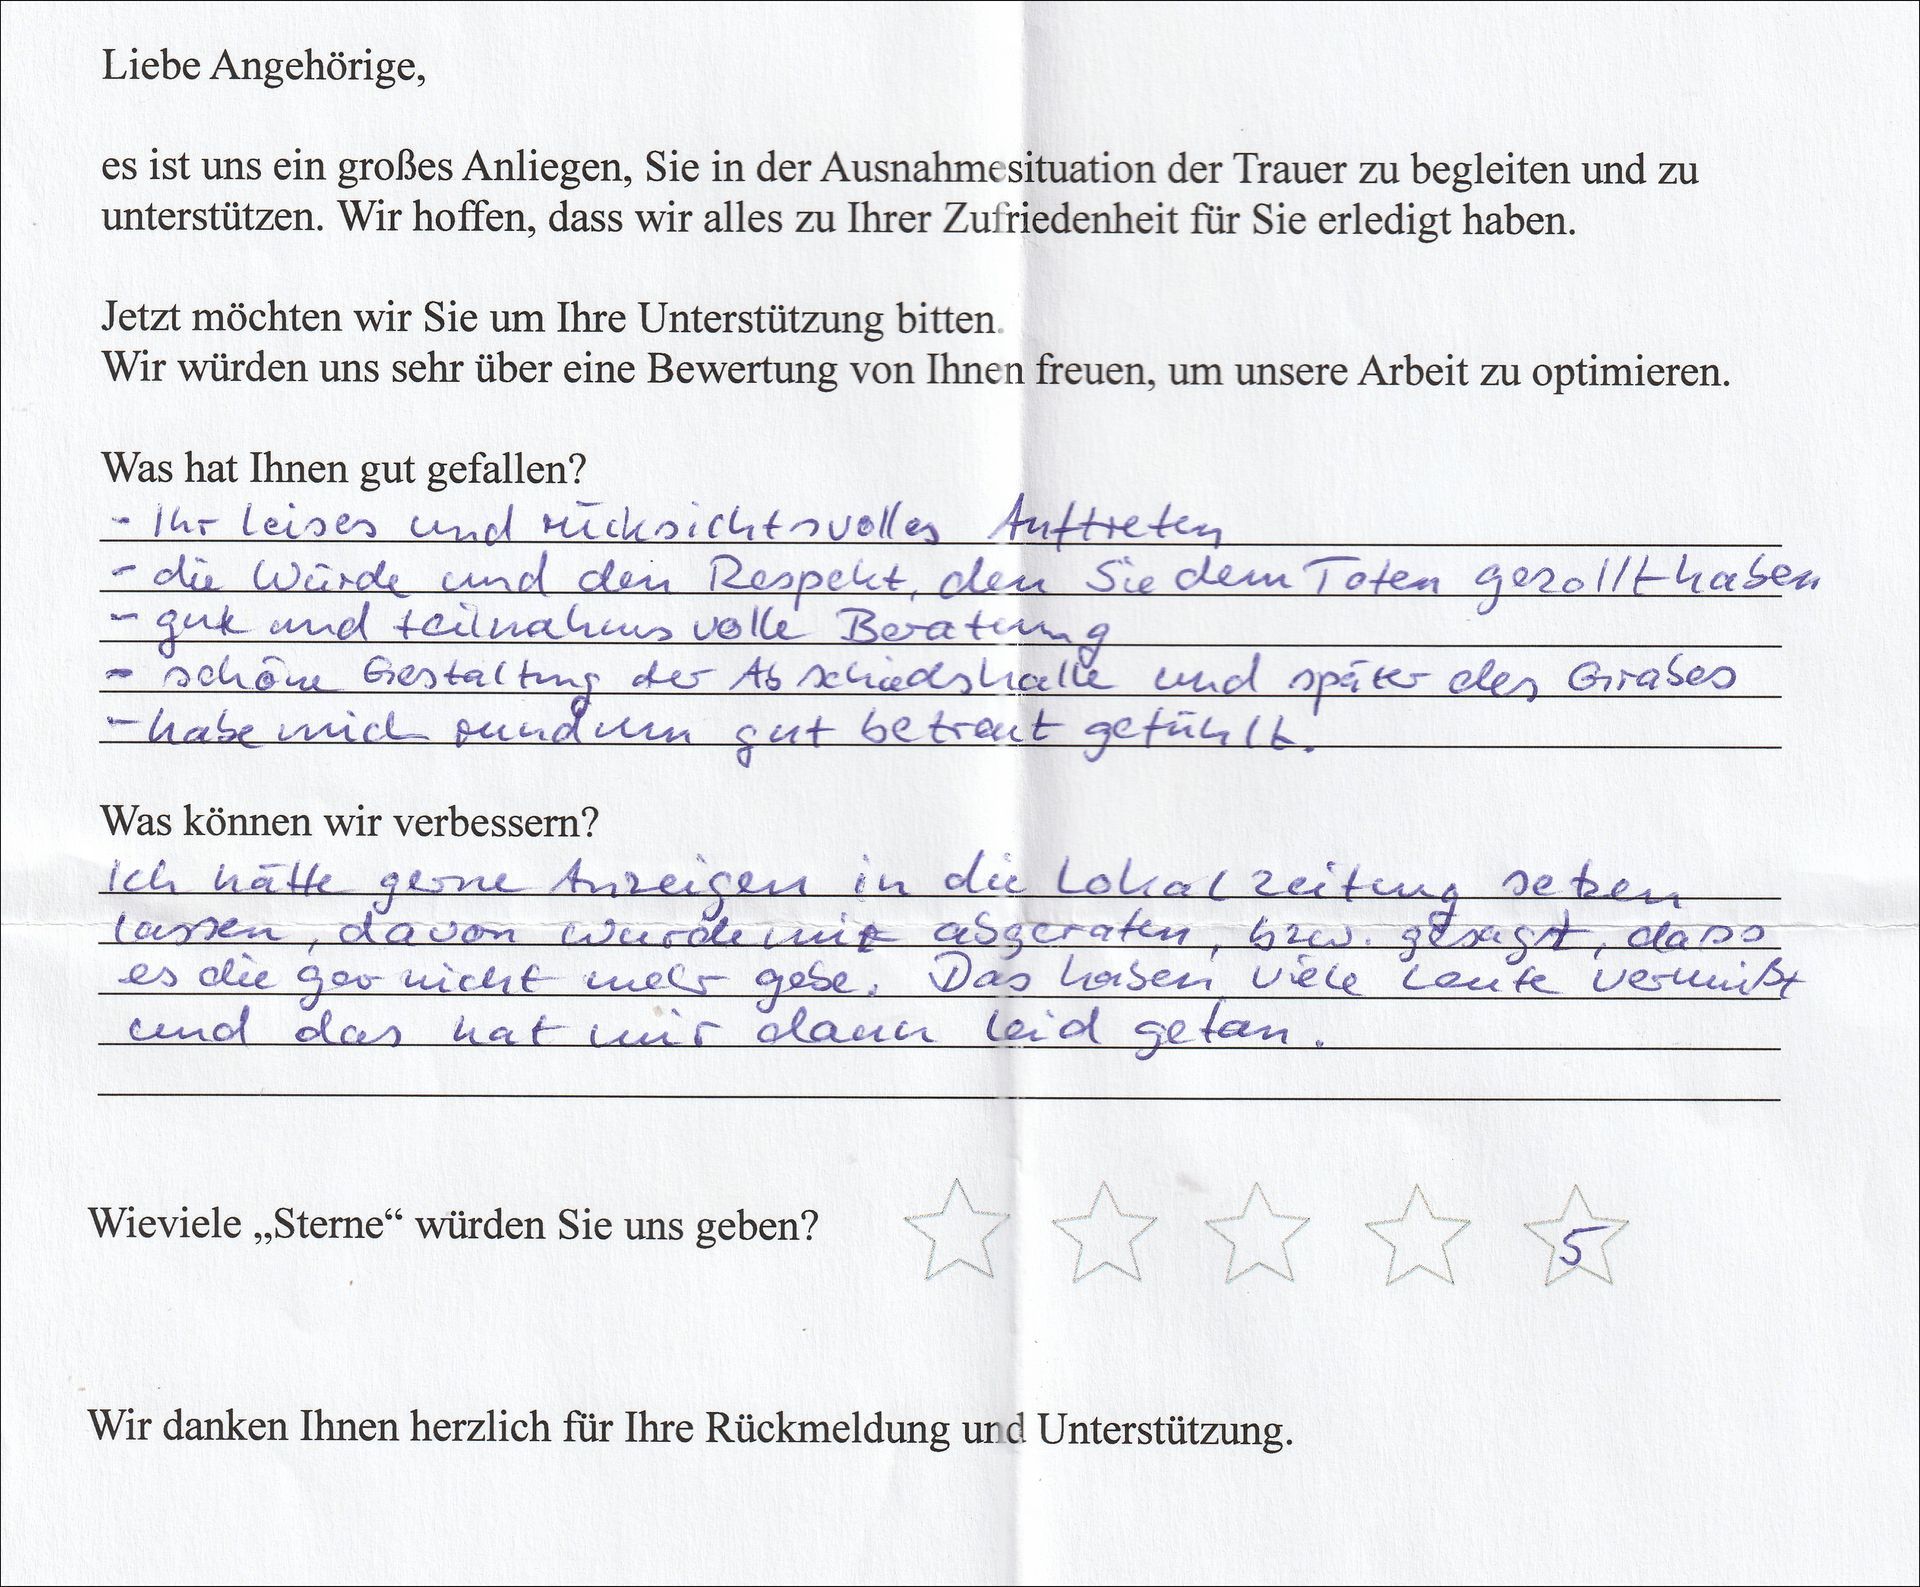 Liebe Angehörige,
es ist uns ein großes Anliegen, Sie in der Ausnahmesituation der Trauer zu begleiten und zu
unterstützen. Wir hoffen, dass wir alles zu Ihrer Zufriedenheit für Sie erledigt haben.
Jetzt möchten wir Sie um Ihre Unterstützung bitten.
Wir würden uns sehr über eine Bewertung von Ihnen freuen, um unsere Arbeit zu optimieren.
Was hat Ihnen gut gefallen?
- Ihr leises und rücksichtsvolles Auftreten
- die Würde und den Respekt, den Sie dem Toten gezollt haben
- gute und teilnahmsvolle Beratung
- schöne Gestaltung der Abschiedshalle und später des Grabes
- habe mich rundum gut betreut gefühlt.
Was können wir verbessern?
Ich hätte gerne Anzeigen in die Lokalzeitung setzen
lassen, davon wurde mir abgeraten, bzw. gesagt, dass
es die gar nicht mehr gebe. Das haben viele Leute vermißt
und das hat mir dann leid getan.
Wieviele „Sterne“ würden Sie uns geben? 5
Wir danken Ihnen herzlich für Ihre Rückmeldung und Unterstützung.